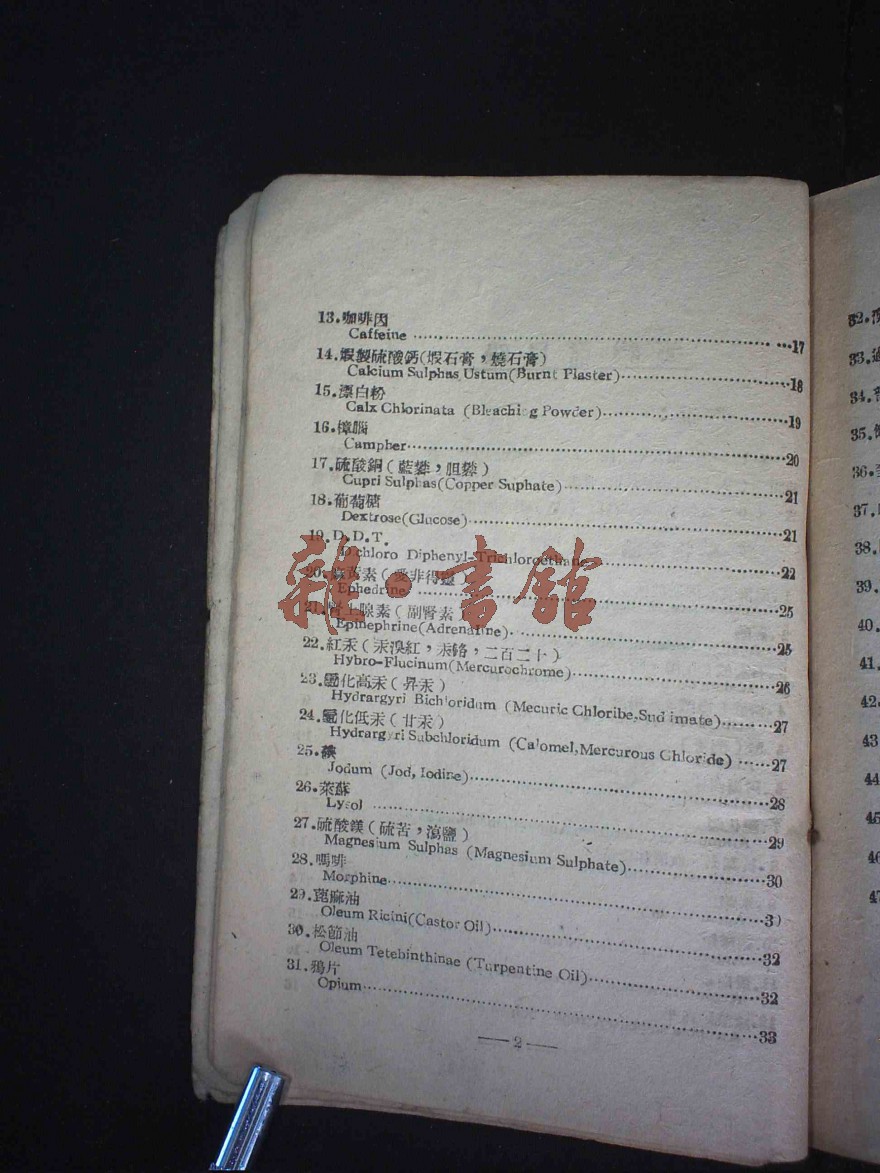 13.咖啡因
Caffeine 17
14.煆製硫酸鈣(煆石膏，燒石膏)
Calcium Sulphas Ustum(Burnt Plaster) 18
15.漂白粉
Calx Chlorinata (Bleaching Powder) 19
16.樟腦
Campher 20
17.硫酸銅(藍礬，胆礬)
Cupri Sulphas(Copper Suphate) 21
18.葡萄糖
Dextrose(Glucose) 21
19.D.D.T.
Dichloro Diphenyl-Trichloroethane 22
20.麻黃素(愛非得靈)
Ephedrine 25
21.腎上腺素(副腎素)
Epinephrine(Adrenaline) 25
22.紅汞(汞溴紅，汞鉻，二百二十)
Hybro-Flucinum(Mercurochrome) 26
23.化高汞(昇汞)
Hydrargyri Bichloridum (Mecuric Chloribe, imate) 27
24.化低汞(甘汞)
Hydrargyri Subchloridum (Calomel,Mercurous Chloride) 27
25.碘
Jodum (Jod, Iodine) 28
26.萊蘇
Lysol 29
27.硫酸鎂(硫苦，瀉鹽)
Magnesium Sulphas (Magnesium Sulphate) 30
28.嗎啡
Morphine
29.蓖麻油
Oleum Ricini(Castor Oil) 32
30.松節油
Oleum Tetebinthinae (Turpentine Oil) 32
31.鴉片
Opium 33
—2—
雜·書館
32.
33.
34.
35.
36.
37.
38.
39.
40.
41.
42.
43
44
45
46
47